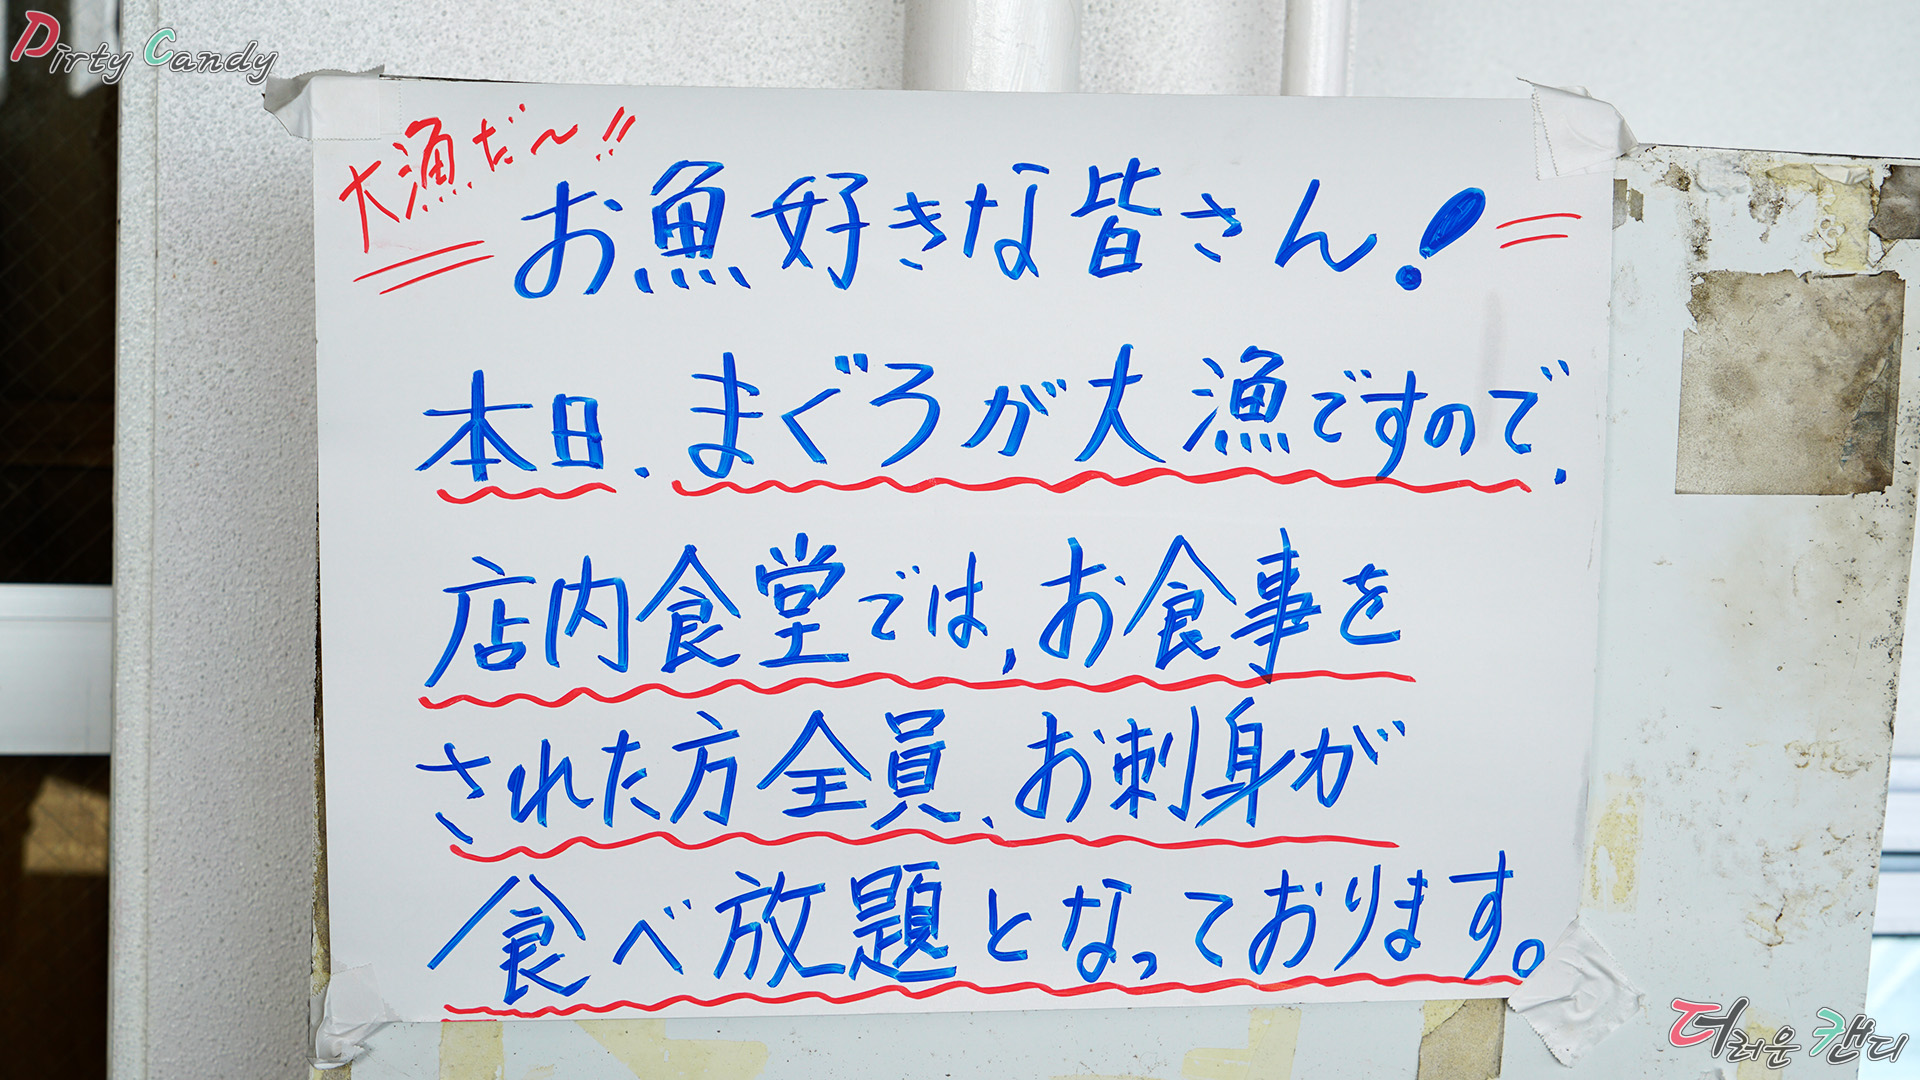 Dirty Candy
大漁だ〜!!
お魚好きな皆さん!
本日、まぐろが大漁ですので、
店内食堂では、お食事を
された方全員、お刺身が
食べ放題となっております。
더러운 캔디